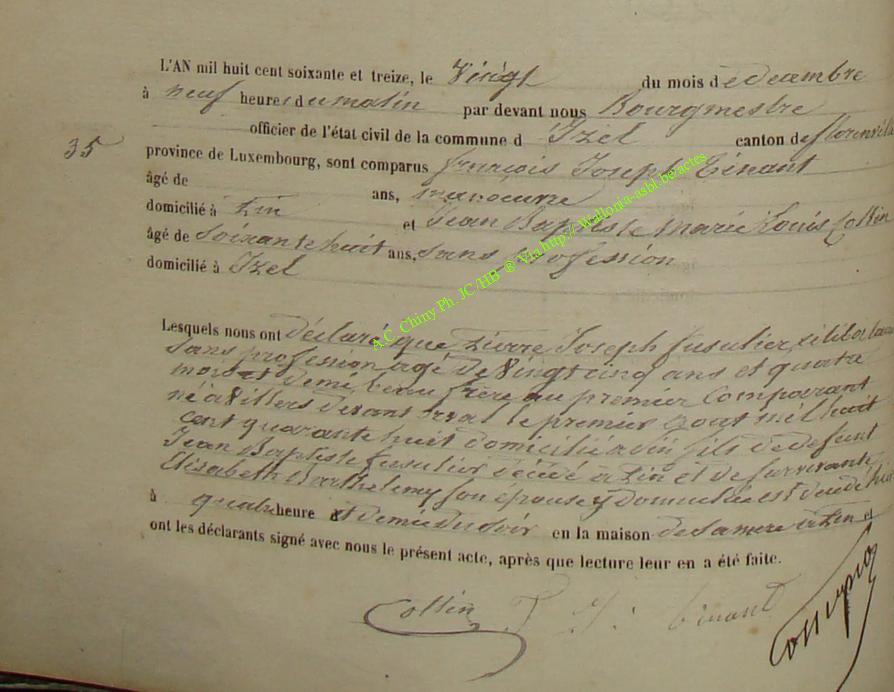 L'AN mil huit cent soixante et treize, le Vingt du mois de decembre
à neuf heures du matin par devant nous Bourgmestre
officier de l'état civil de la commune d Izel canton de florenville
35
province de Luxembourg, sont comparus françois Joseph Tinant
âgé de ans, manoeuvre
domicilié à Pin et Jean Baptiste Marie Louis Collin
âgé de Soixante huit ans, sans profession
domicilié à Izel
Lesquels nous ont déclaré que Pierre Joseph fusulier célibataire
sans profession agé de Vingt cinq ans et quatre
mois et demi beau frère au premier Comparant
né à Villers devant orval le premier aout mil huit
cent quarante huit domicilié à Pin fils de defunt
Jean Baptiste fusulier décédé à Pin et de survivante
Elisabeth Barthelemy son épouse y domiciliée est décédé hier
à quatre heure et demie du soir en la maison de sa mere à Pin et
ont les déclarants signé avec nous le présent acte, après que lecture leur en a été faite.
Collin F J. Tinant
A.C. Chiny Ph. JC/HB ® Via http://Wallonia-asbl.be/actes